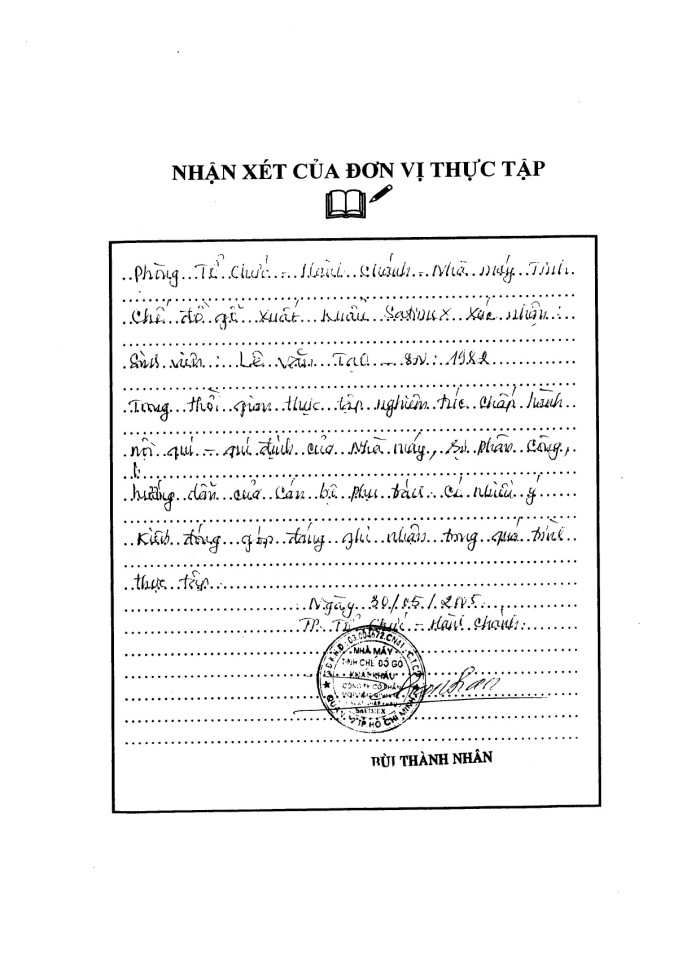 NHẬN XÉT CỦA ĐƠN VỊ THỰC TẬP
Phòng Tổ Chức - Hành Chánh - Nhà máy Tinh
Chế đồ gỗ xuất khẩu Satimex xác nhận:
Sinh viên: Lê Văn Tạo - SN: 1982
Trong thời gian thực tập nghiêm túc chấp hành
nội qui - qui định của Nhà máy, sự phân công,
hướng dẫn của Cán bộ phụ trách. Có nhiều ý
kiến đóng góp đáng ghi nhận trong quá trình
thực tập.
Ngày 30/05/2005
TP. Tổ Chức - Hành Chánh
NHÀ MÁY
TINH CHẾ ĐỒ GỖ
XUẤT KHẨU
CÔNG TY CỔ PHẦN
SATIMEX
TP HỒ CHÍ MINH
BÙI THÀNH NHÂN